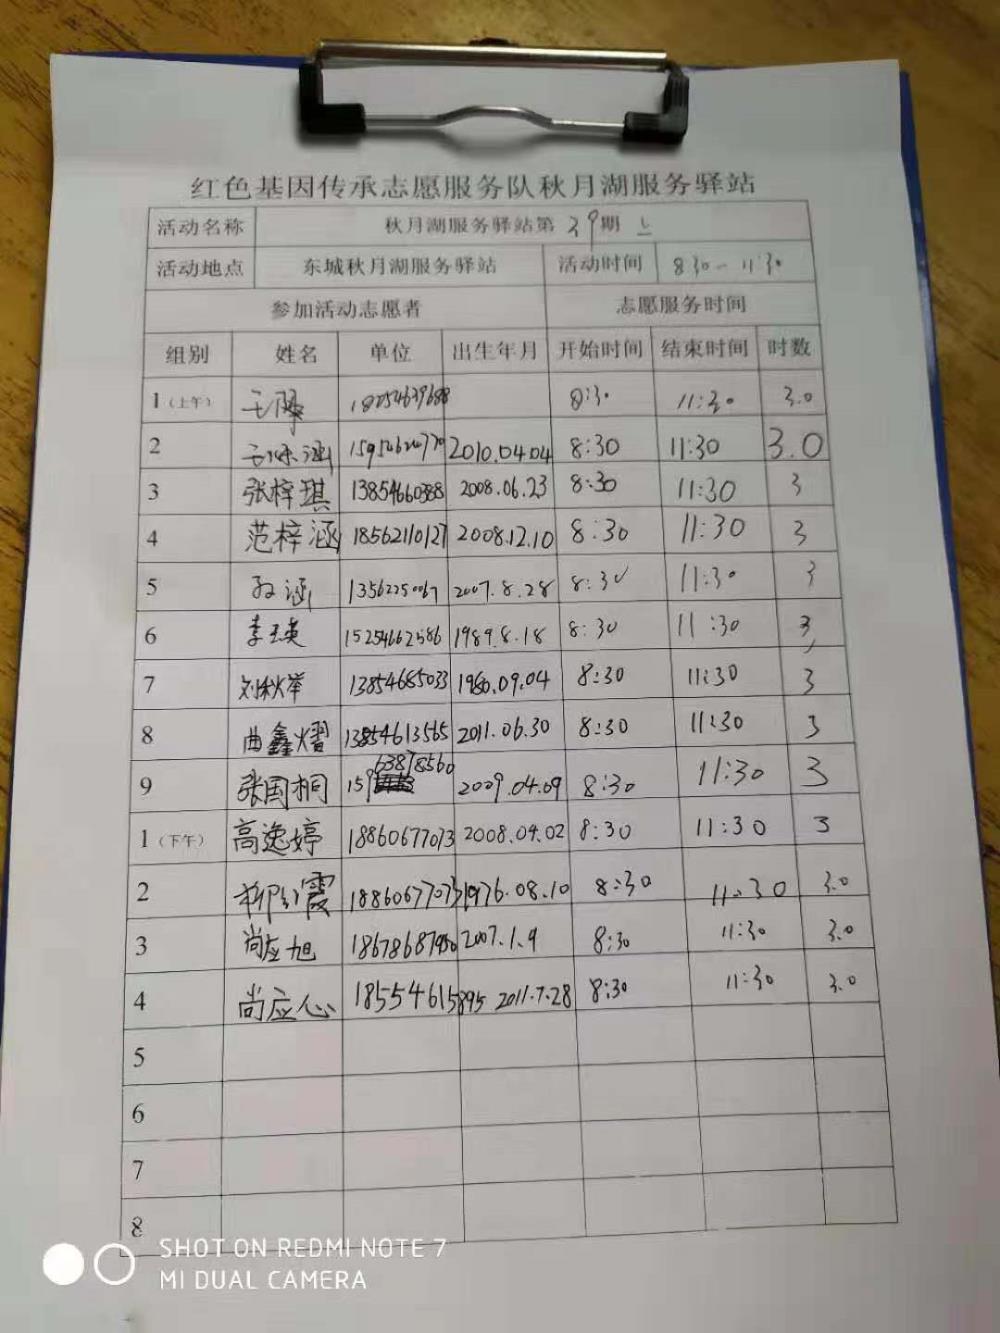 红色基因传承志愿服务队秋月湖服务驿站
活动名称 秋月湖服务驿站第39期 上
活动地点 东城秋月湖服务驿站 活动时间 8:30-11:30
参加活动志愿者 志愿服务时间
组别 姓名 单位 出生年月 开始时间 结束时间 时数
1(上午) 8:30 11:30 3.0
2 涵 2010.04.04 8:30 11:30 3.0
3 张梓琪 13854660388 2008.06.23 8:30 11:30 3
4 范梓涵 18562110127 2008.12.10 8:30 11:30 3
5 孙涵 2007.8.28 8:30 11:30 3
6 李玉英 15254662586 1989.8.18 8:30 11:30 3
7 刘秋苹 13854685033 1980.09.04 8:30 11:30 3
8 曲鑫熠 13854613565 2011.06.30 8:30 11:30 3
9 张国桐 15963878560 2009.04.09 8:30 11:30 3
1(下午) 高逸婷 18860677073 2008.04.02 8:30 11:30 3
2 柳红霞 18860677073 1976.08.10 8:30 11:30 3.0
3 尚应旭 2007.1.9 8:30 11:30 3.0
4 尚应心 18554615895 2011.7.28 8:30 11:30 3.0
5
6
7
8
SHOT ON REDMI NOTE 7
MI DUAL CAMERA